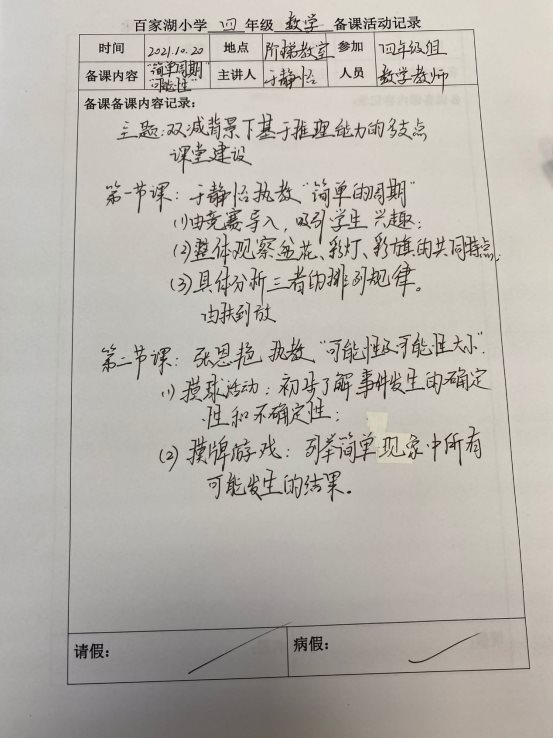 百家湖小学 四 年级 数学 备课活动记录
时间 2021.10.20 地点 阶梯教室 参加 四年级组
备课内容 "简单周期" "可能性" 主讲人 于静怡 人员 数学教师
备课备课内容记录：
主题：双减背景下基于推理能力的多支点
课堂建设
第一节课：于静怡执教"简单的周期"
(1)由竞赛导入，吸引学生兴趣；
(2)整体观察盆花、彩灯、彩旗的共同特点；
(3)具体分析三者的排列规律。
由扶到放
第二节课：张恩艳 执教"可能性及可能性大小"
(1)摸球活动：初步了解事件发生的确定
性和不确定性；
(2)摸牌游戏：列举简单现象中所有
可能发生的结果。
请假： 病假：